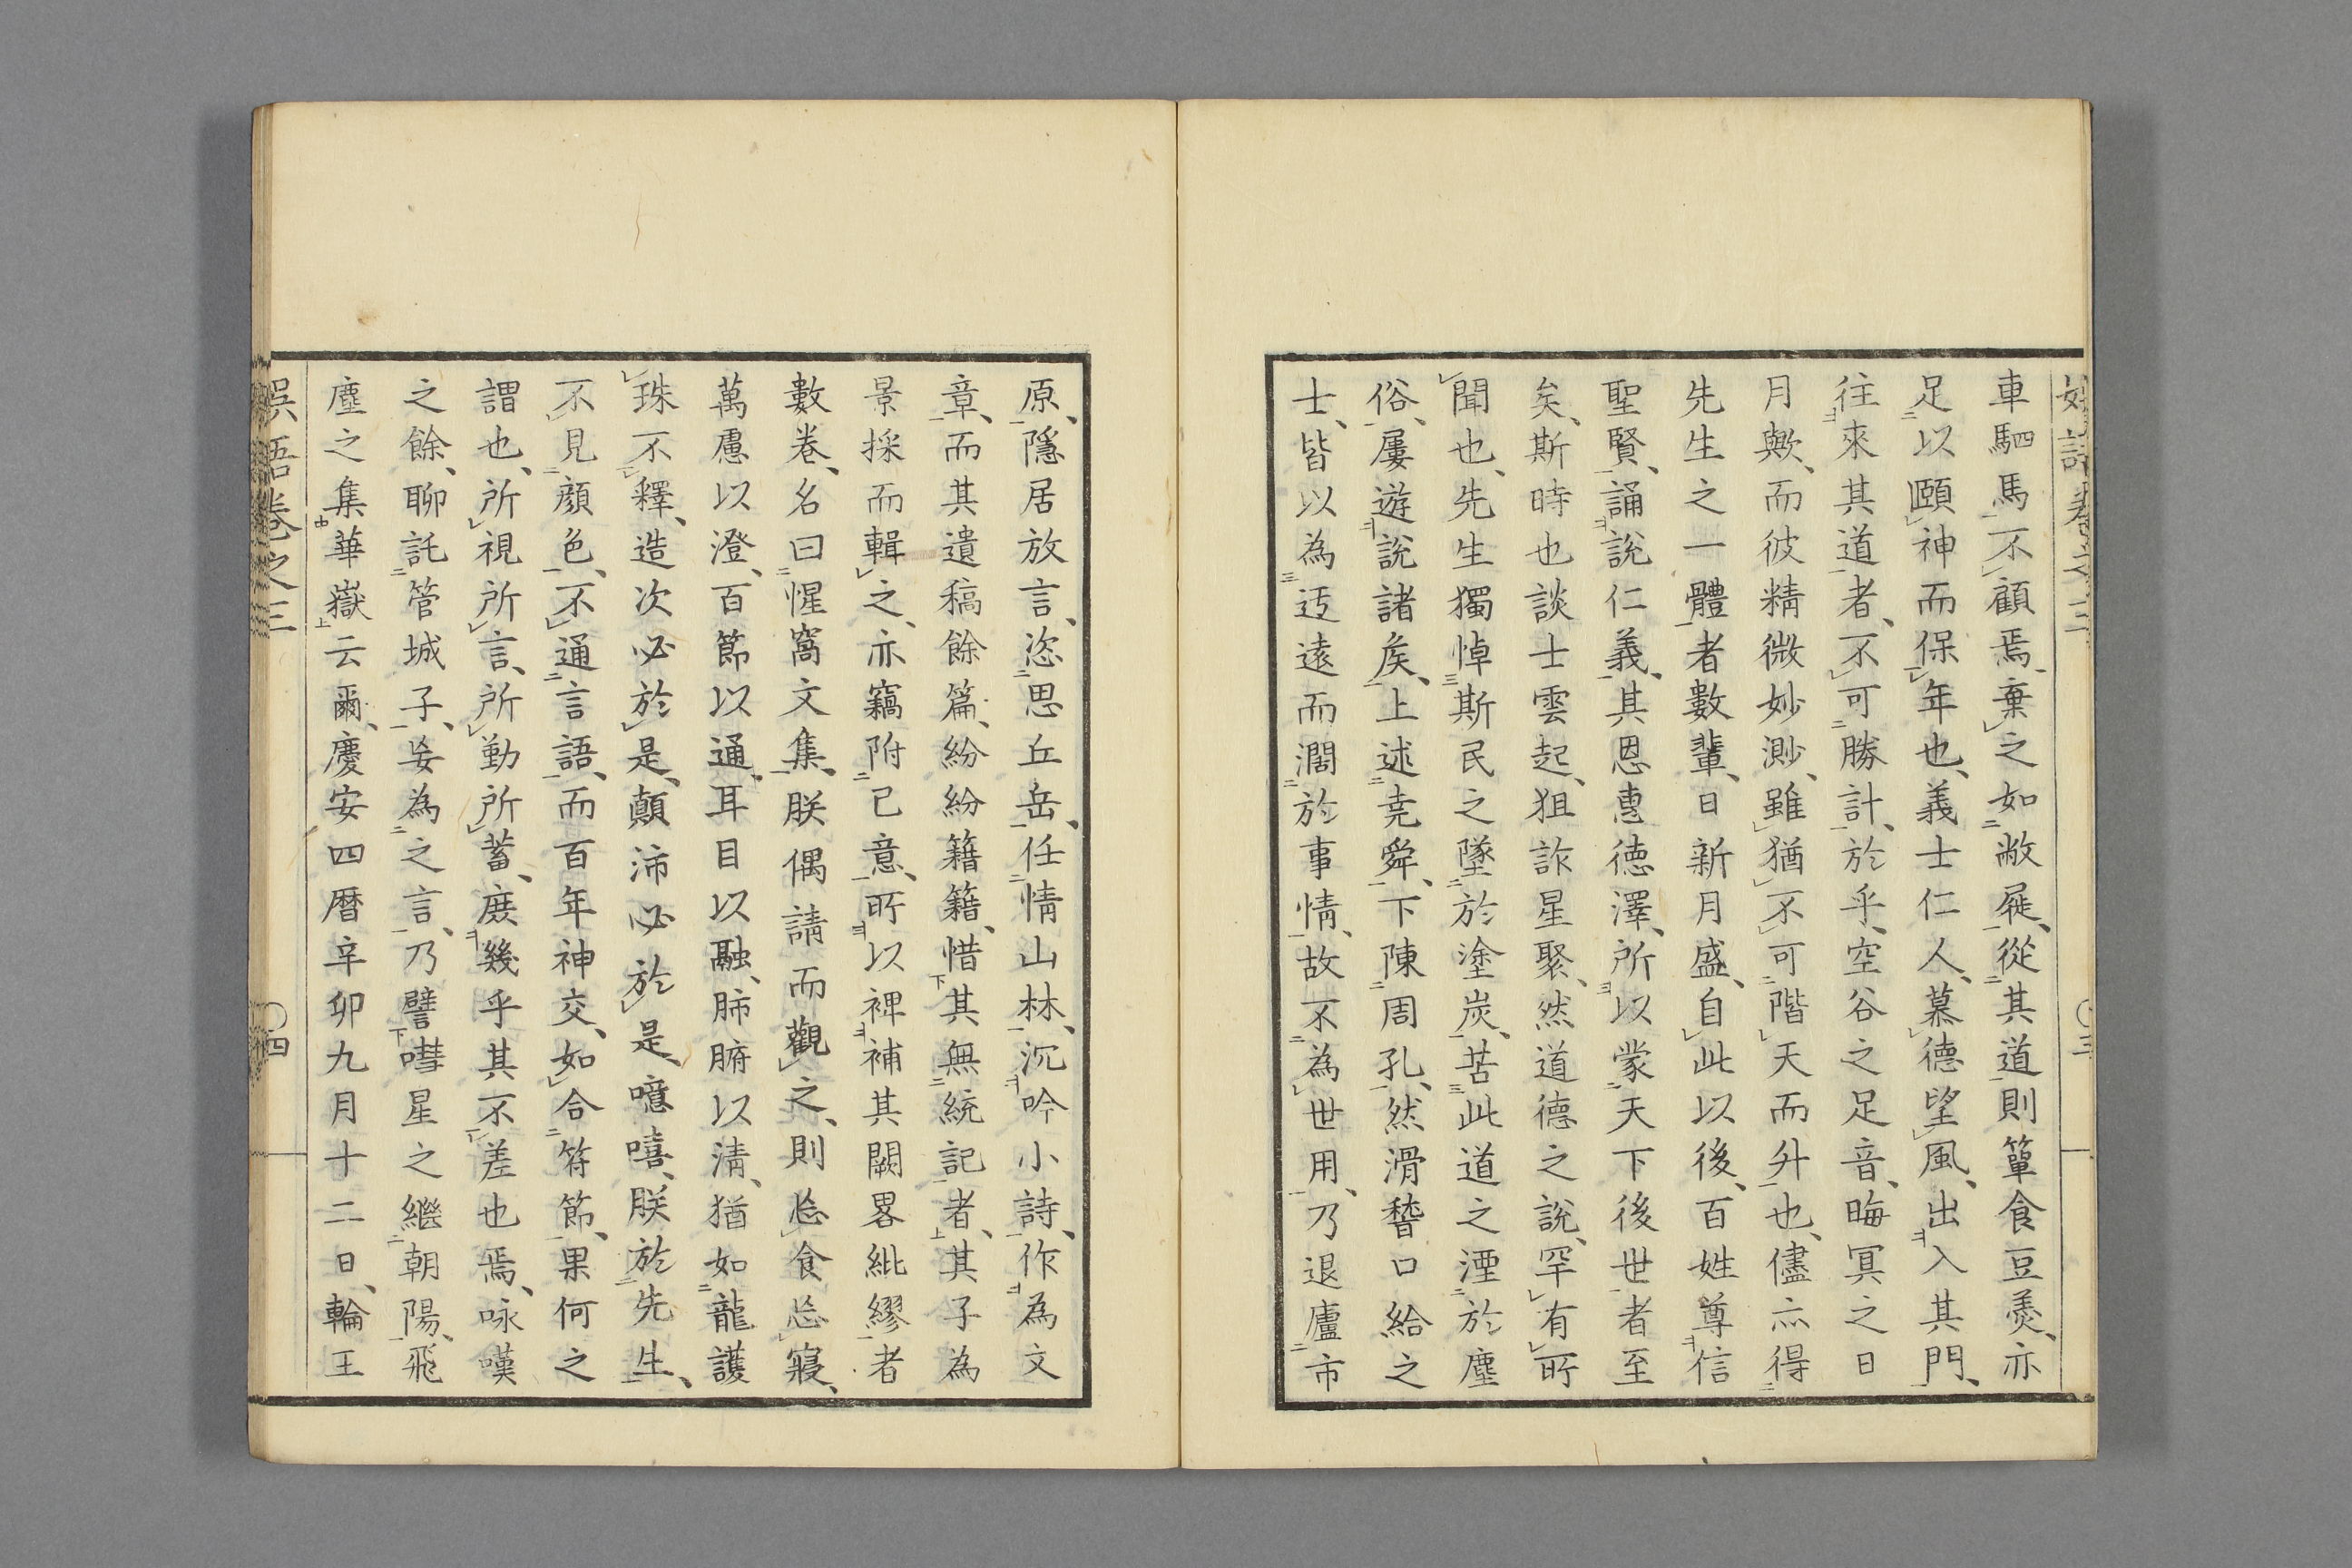 車駟馬不顧焉、棄之如敝屣、從其道則簞食豆羹、亦
足以頤神而保年也、義士仁人、慕德望風、出入其門、
往來其道者、不可勝計、於乎、空谷之足音、晦冥之日
月歟、而彼精微妙測、雖猶不可階天而升也、儘亦得
先生之一體者數輩、日新月盛、自此以後、百姓尊信
聖賢、誦說仁義、其恩惠德澤、所以蒙天下後世者至
矣、斯時也談士雲起、狙詐星聚、然道德之說、罕有所
聞也、先生獨悼斯民之墜於塗炭、苦此道之湮於塵
俗、屢遊說諸矦、上述堯舜、下陳周孔、然滑稽口給之
士、皆以為迂遠而濶於事情、故不為世用、乃退廬市
原、隱居放言、恣思丘岳、任情山林、沉吟小詩、作為文
章、而其遺稿餘篇、紛紛籍籍、惜其無統記者、其子為
景採而輯之、亦竊附己意、所以裨補其闕畧紕繆者
數卷、名曰惺窩文集、朕偶請而觀之、則忘食忘寢、
萬慮以澄、百節以通、耳目以融、肺腑以清、猶如龍護
珠不釋、造次必於是、顛沛必於是、噫嘻、朕於先生、
不見顏色、不通言語、而百年神交、如合符節、果何之
謂也、所視所言、所勤所蓄、庶幾乎其不差也焉、咏嘆
之餘、聊託管城子、妄為之言、乃譬嘒星之繼朝陽、飛
塵之集華嶽云爾、慶安四曆辛卯九月十二日、輪王
娯語卷之三
〇四